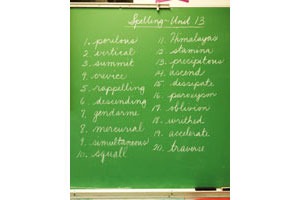 Spelling-Unit 13
1. perilous
2. vertical
3. summit
4. crevice
5. rappelling
6. descending
7. gendarme
8. mercurial
9. simultaneous
10. squall
11. Himalayas
12. stamina
13. precipitous
14. ascend
15. dissipate
16. paroxysm
17. oblivion
18. writhed
19. accelerate
20. traverse